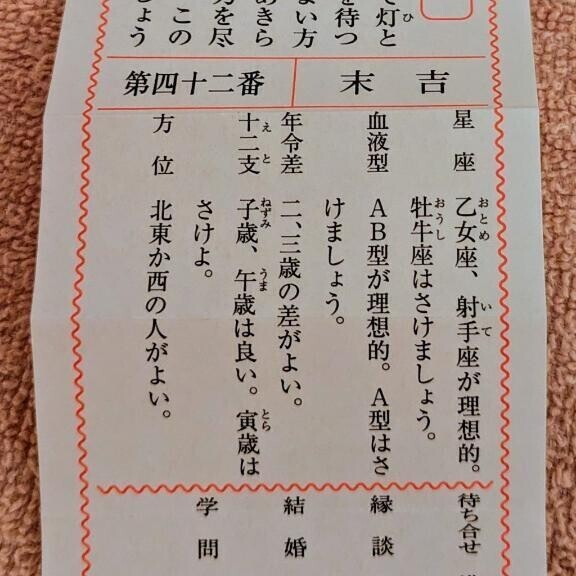 ひ
灯と
を待つ
い方
きら
を尽
この
しょう
第四十二番 末吉
星座 乙女座、射手座が理想的。
おとめ いて
牡牛座はさけましょう。
おうし
血液型 AB型が理想的。A型はさ
けましょう。
年令差 二、三歳の差がよい。
十二支 子歳、午歳は良い。寅歳は
えと ねずみ うま とら
さけよ。
方位 北東か西の人がよい。
待ち合せ
縁談
結婚
学問